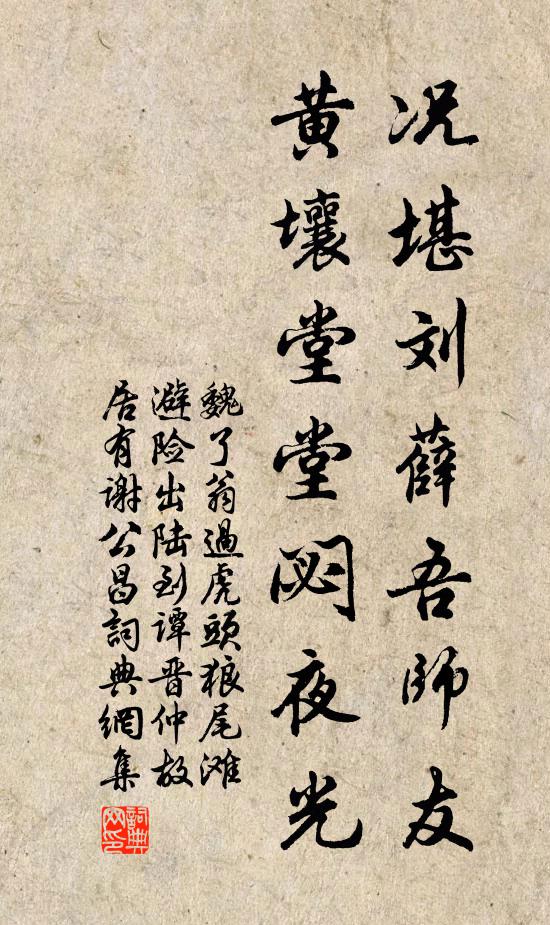 况堪刘薛吾师友
黄壤堂堂閟夜光
魏了翁過虎頭狼尾滩
避险出陆到谭晋仲故
居有谢公昌詞典網集
詞典
网印